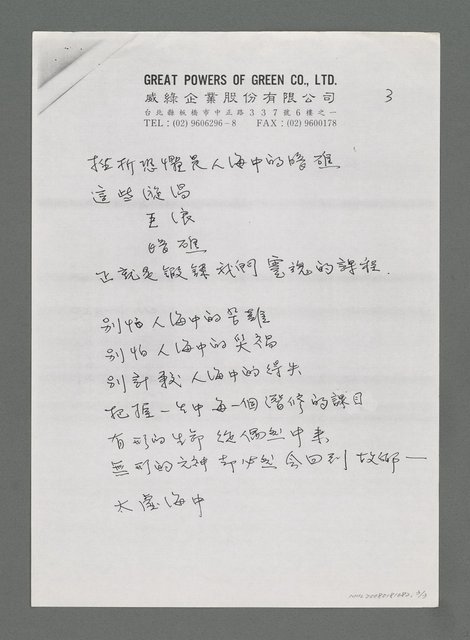 GREAT POWERS OF GREEN CO., LTD.
威綠企業股份有限公司
台北縣板橋市中正路337號6樓之一
TEL：(02) 9606296－8 FAX：(02) 9600178
3
挫折恐懼是人海中的暗礁
這些漩渦
巨浪
暗礁
正就是鍛鍊我們靈魂的課程.
別怕人海中的苦難
別怕人海中的災禍
別計較人海中的得失
把握一生中每一個潛修的課目
有形的生命從偶然中来
無形的元神却必然会回到故鄉一
太虛海中